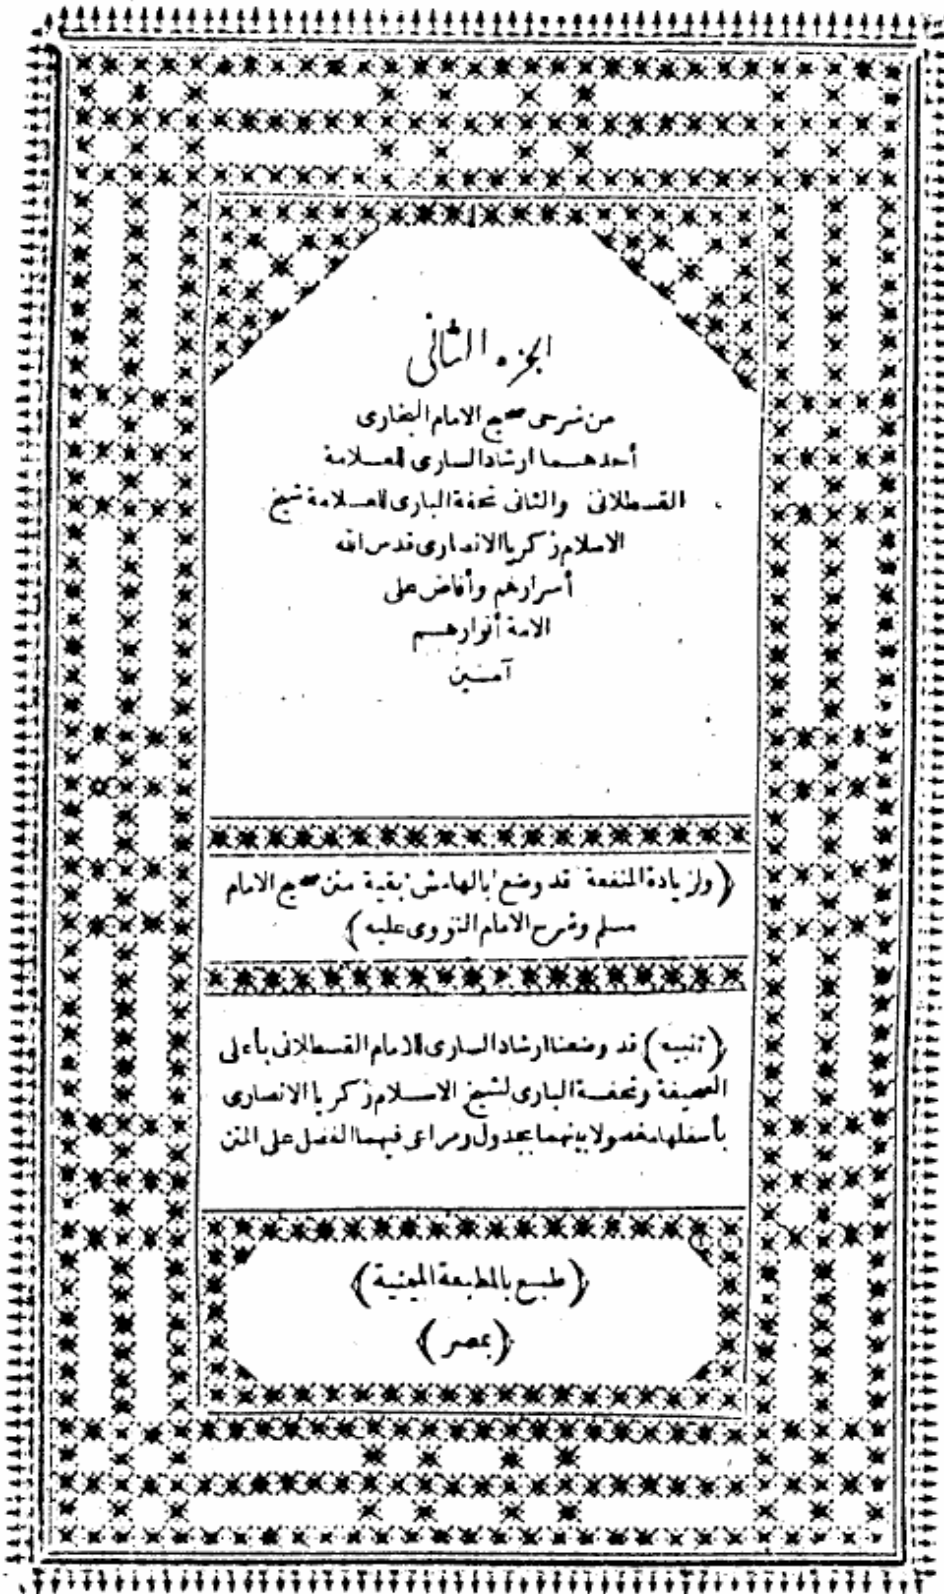 الجزء الثانى
من شرحى صحيح الامام البخارى
أحدهـما ارشاد السارى للعـلامة
القسطلانى والثانى تحفة البارى للعـلامة شيخ
الاسلام زكريا الانصارى قدس الله
أسرارهم وأفاض على
الامة أنوارهـم
آمـين
(ولزيادة المنفعة قد وضع بالهامش بقية متن صحيح الامام
مسلم وشرح الامام النووى عليه)
(تنبيه) قد وضعنا ارشاد السارى للامام القسطلانى بأعلى
الصحيفة وتحفـة البارى لشيخ الاسـلام زكريا الانصارى
بأسفلها مفصولا بينهما بجدول ومراعى فيهما الفصل على المتن
(طبـع بالمطبعة الميمنية)
(بمصر)